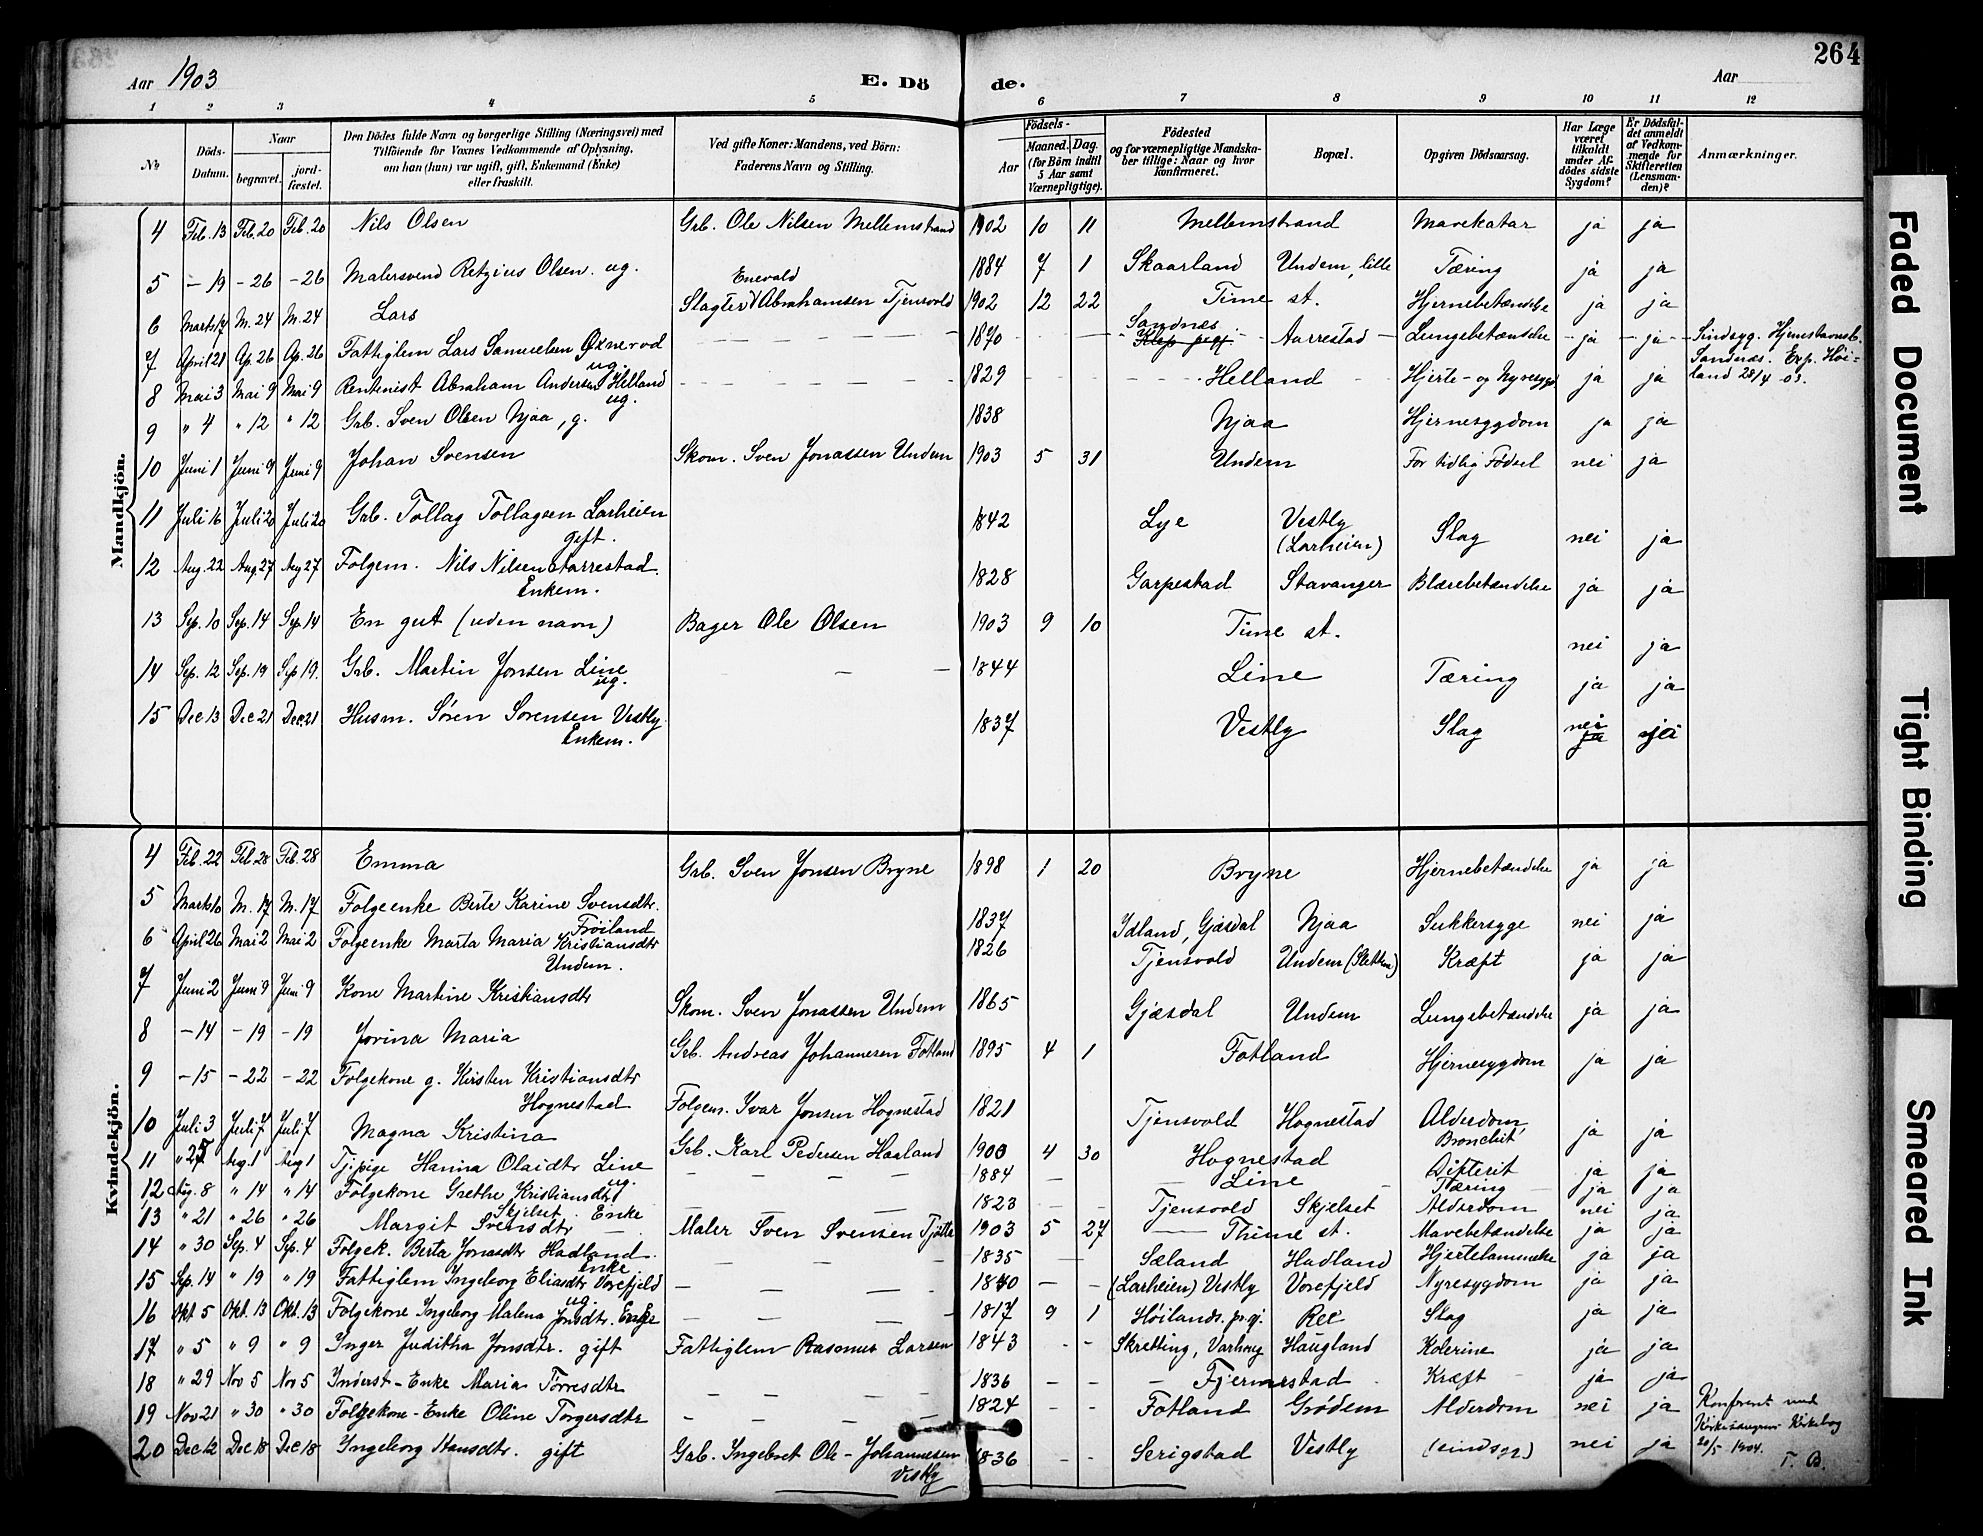 264
Aar 1903 E. Dö de. Aar
1 2 3 4 5 6 7 8 9 10 11 12
№
Döds-Datum.
Naar
begravet.
jordfæstet.
Den Dödes fulde Navn og borgerlige Stilling (Næringsvei) med
Tilföiende for Voxnes Vedkommende af Oplysning,
om han (hun) var ugift, gift, Enkemand (Enke)
eller fraskilt.
Ved gifte Koner: Mandens, ved Börn:
Faderens Navn og Stilling.
Födsels-
Aar
Maaned. Dag.
(for Börn indtil
5 Aar samt
Værnepligtige).
Födested
og for værnepligtige Mandskaber tillige: Naar og hvor
konfirmeret.
Bopæl.
Opgiven Dödsaarsag.
Har Læge
været
tilkaldt
under Afdödes sidste
Sygdom?
Er Dödsfaldet anmeldt
af Vedkommende for
Skifteretten
(Lensmanden)?
Anmærkninger.
Mandkjön.
4 Feb. 13 Feb. 20 Feb. 20 Nils Olsen Grb. Ole Nilsen Mellemstrand 1902 10 11 Mellemstrand Mavekatar ja ja
5 – 19 – 26 – 26 Malersvend Retzius Olsen. ug. 1884 7 1 Skaarland Undem, lille Tæring ja ja
6 Marts 17 M. 24 M. 24 Lars Slagter Enevald Abrahamsen Tjensvold 1902 12 22 Time st. Hjernebetændelse ja ja
7 April 21 Ap. 26 Ap. 26 Fattiglem Lars Samuelsen Øxnevad ug. 1870 Sandnæs Klep pegj Aarrestad Lungebetændelse ja ja Sindsyg. Hjemstavnsb. Sandnæs. Exp. Høiland 28/4 03.
8 Mai 3 Mai 9 Mai 9 Rentenist Abraham Andersen Helland ug. 1829 Helland Hjerte- og Nyresygd ja ja
9 " 4 " 12 " 12 Grb. Sven Olsen Njaa, g. 1838 Njaa Hjernesygdom ja ja
10 Juni 1 Juni 9 Juni 9 Johan Svensen Skom. Sven Jonassen Undem 1903 5 31 Undem For tidlig Fødsel nei ja
11 Juli 16 Juli 20 Juli 20 Grb. Tollag Tollagsen Larheien gift. 1842 Lye Vestly (Larheien) Slag nei ja
12 Aug. 22 Aug. 27 Aug 27 Folgem. Nils Nilsen Aarrestad. Enkem. 1828 Garpestad Stavanger Blærebetændelse ja ja
13 Sep. 10 Sep. 14 Sep. 14 En gut (uden navn) Bager Ole Olsen 1903 9 10 Time st. nei ja
14 Sep. 12 Sep. 19 Sep 19. Grb. Martin Jonsen Line ug. 1844 Line Tæring ja ja
15 Dec 13 Dec 21 Dec. 21 Husm. Søren Sørensen Vestly Enkem. 1837 Vestly Slag nei ja
Kvindekjön.
4 Feb. 22 Feb. 28 Feb. 28 Emma Grb. Sven Jonsen Bryne 1898 1 20 Bryne Hjernebetændelse ja ja
5 Marts 10 M. 17 M. 17 Folgeenke Berte Karine Svensdtr. Frøiland 1837 Ydland, Gjæsdal Njaa Sukkersyge nei ja
6 April 26 Mai 2 Mai 2 Folgeenke Marta Maria Kristiansdtr Undem. 1826 Tjensvold Undem (Sletten) Kræft ja ja
7 Juni 2 Juni 9 Juni 9 Kone Martine Kristiansdtr Skom. Sven Jonassen Undem 1865 Gjæsdal Undem Lungebetændelse ja ja
8 – 14 – 19 – 19 Jorina Maria Grb. Andreas Johannesen Fotland 1895 4 1 Fotland Hjernesygdom ja ja
9 – 15 – 22 – 22 Folgekone g. Kirsten Kristiansdtr Hognestad Folgem. Ivar Jonsen Hognestad 1821 Tjensvold Hognestad Alderdom, Bronchit ja ja
10 Juli 3 Juli 7 Juli 7 Magna Kristina Grb. Karl Pedersen Haaland 1900 4 30 Hognestad Difterit ja ja
11 " 25 Aug. 1 Aug 1 Tjpige Hanna Olaidtr Line ug. 1884 Line Tæring ja ja
12 Aug. 8 " 14 " 14 Folgekone Grethe Kristiansdtr Skjelset Enke 1823 Tjensvold Skjelset Alderdom nei ja
13 " 21 " 26 " 26 Margit Svensdtr Maler Sven Svensen Tjøtta 1903 5 27 Thime st. Mavebetændelse ja ja
14 " 30 Sep. 4 Sep. 4 Folgek. Berta Jonasdtr Hadland. Enke 1835 Sæland Hadland Hjertelammelse ja ja
15 Sep. 14 " 19 " 19 Fattiglem Ingeborg Eliasdtr Vorefjeld ug. 1840 (Larheien) Vestly Vorefjeld Nyresygdom ja ja
16 Okt 5 Okt. 13 Okt. 13 Folgekone Ingeborg Malena Jonsdtr. Enke 1817 9 1 Høilands. pgj. Ree Slag ja ja
17 " 5 " 9 " 9 Inger Juditha Jonsdtr. gift Fattiglem Rasmus Larsen 1843 Skretting, Varhoug Haugland Kolerine ja ja
18 " 29 Nov 5 Nov 5 Inderst-Enke Maria Torresdtr 1836 Fjermestad Kræft ja ja
19 Nov 21 " 30 " 30 Folgekone-Enke Oline Torgersdtr 1824 Fotland Grødem Alderdom nei ja Konferert med Kirkesangerens Kirkebog 20/5 1904. T. B.
20 Dec 12 Dec 18 Dec 18 Ingeborg Hansdtr. gift Grb. Ingebret Ole-Johannesen Vestly 1836 Serigstad Vestly (sindsyg) nei ja
Faded Document
Tight Binding
Smeared Ink